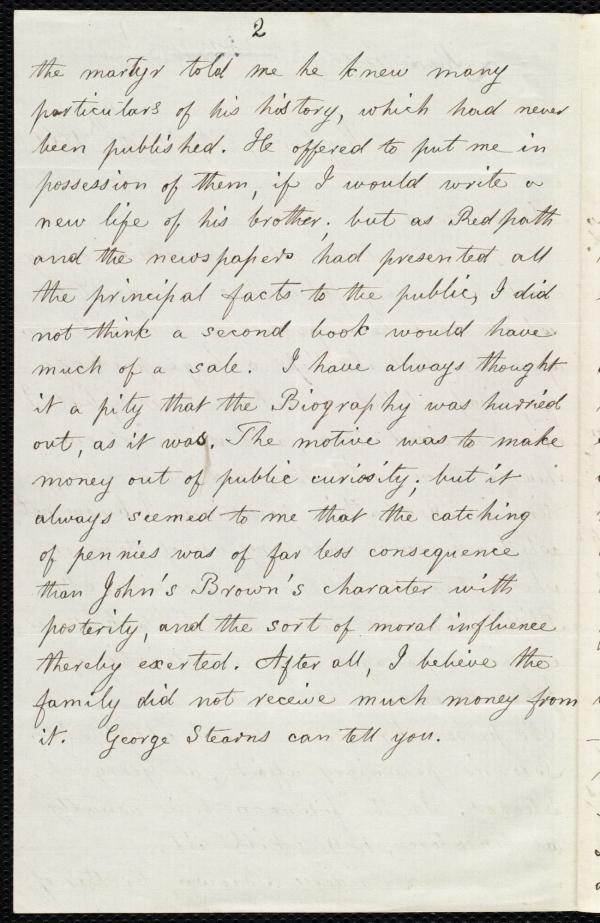 2
the martyr told me he knew many
particulars of his history, which had never
been published. He offered to put me in
possession of them, if I would write a
new life of his brother; but as Redpath
and the newspapers had presented all
the principal facts to the public, I did
not think a second book would have
much of a sale. I have always thought
it a pity that the Biography was hurried
out, as it was. The motive was to make
money out of public curiosity; but it
always seemed to me that the catching
of pennies was of far less consequence
than John's Brown's character with
posterity, and the sort of moral influence
thereby exerted. After all, I believe the
family did not receive much money from
it. George Stearns can tell you.